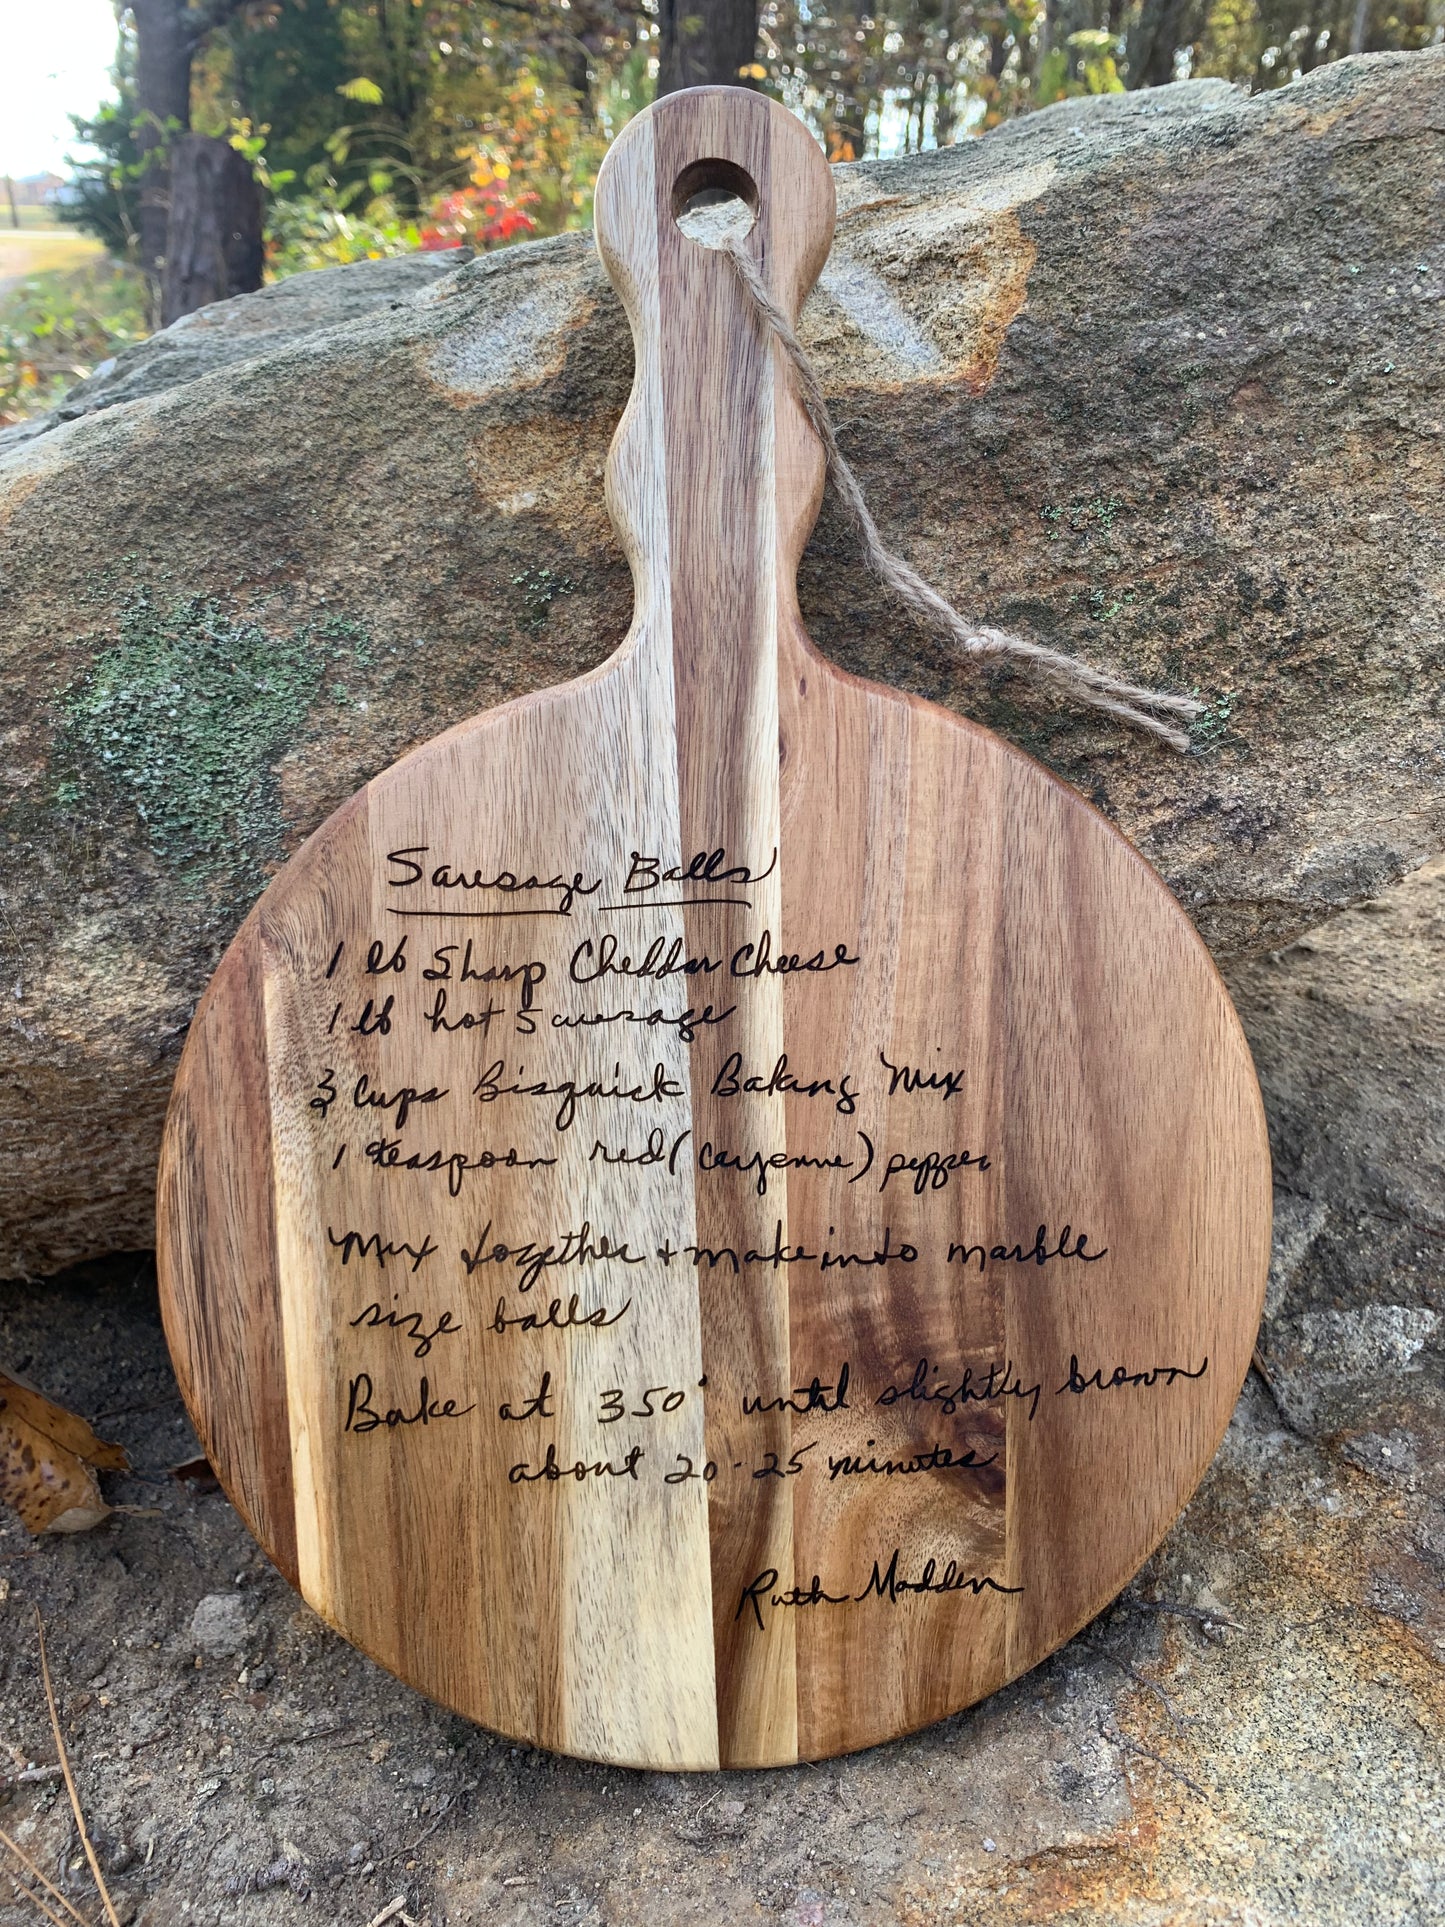 Sausage Balls
1 lb Sharp Cheddar Cheese
1 lb hot Sausage
3 Cups Bisquick Baking Mix
1 teaspoon red (Cayenne) pepper
Mix together + make into marble
size balls
Bake at 350° until slightly brown
about 20-25 minutes
Ruth Madden